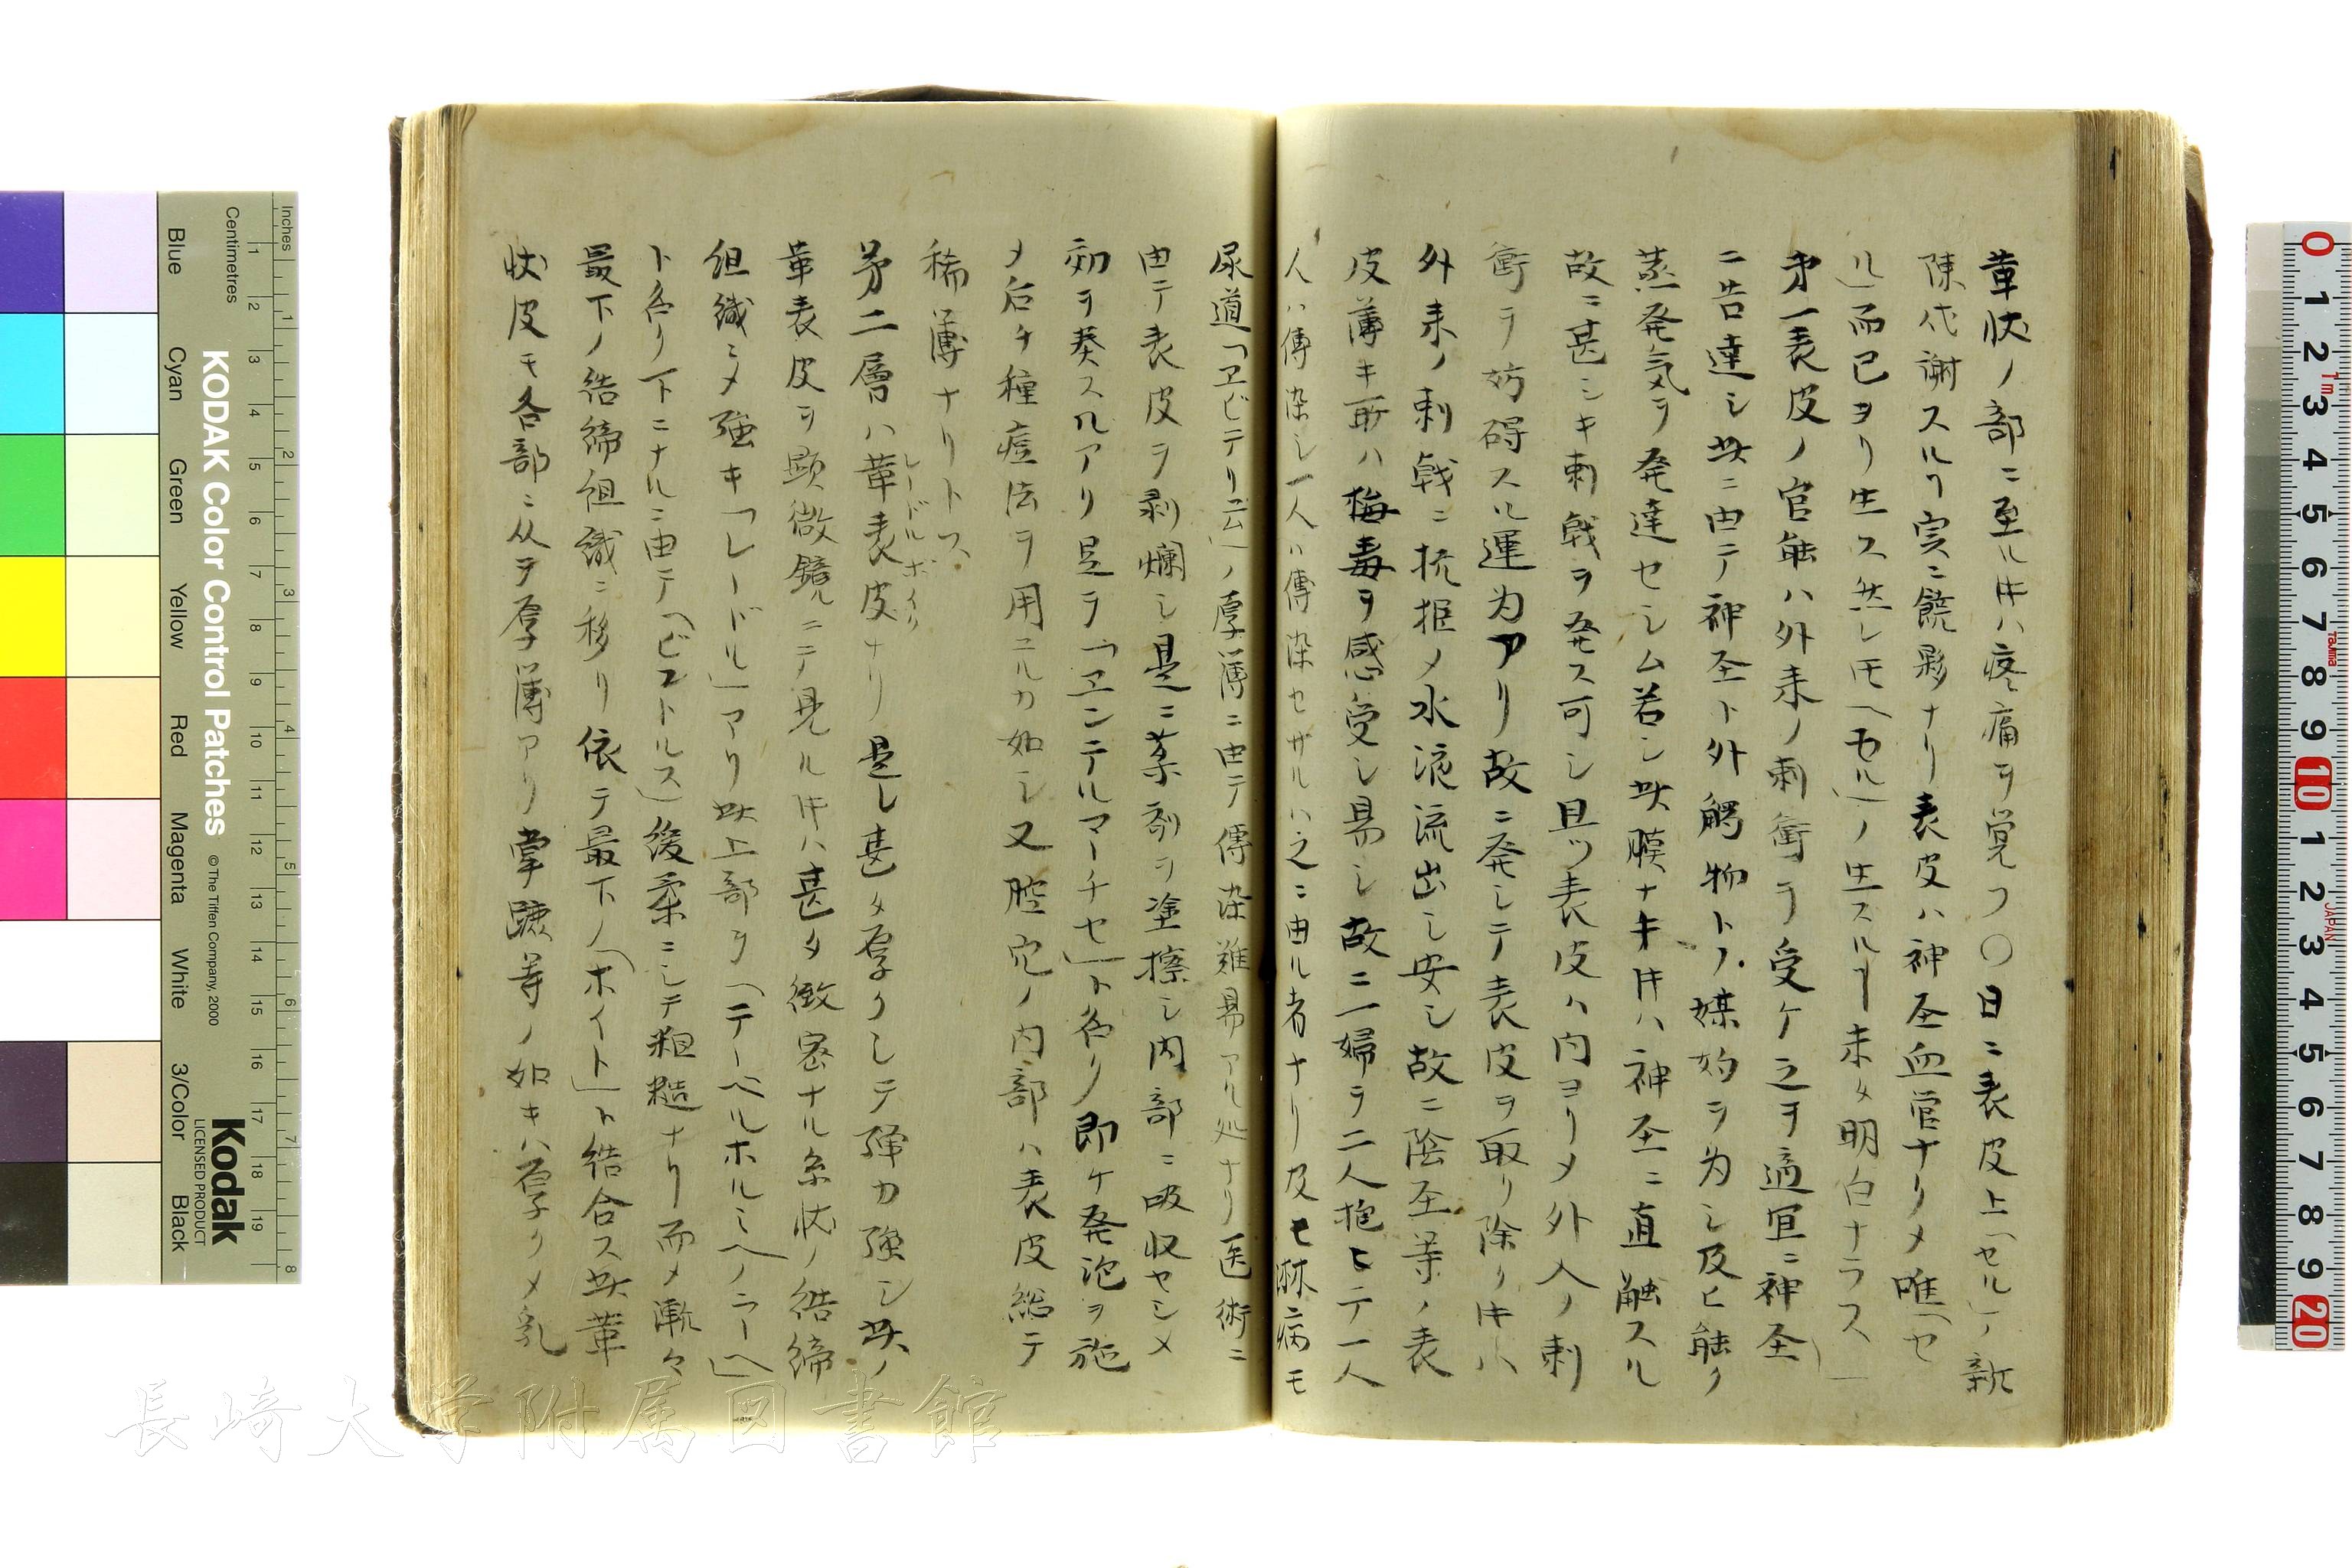 革状ノ部ニ至ル𪜈ハ疼痛ヲ覚フ〇日ニ表皮上「セル」ノ新
陳代謝スルヿ実ニ饒夥ナリ表皮ハ神圣血管ナクメ唯「セ
ル」而已ヨリ生ス然レ𪜈「セル」ノ生スルヿ未タ明白ナラス
第一表皮ノ官能ハ外来ノ刺衝ヲ受ケ之ヲ適宜ニ神圣
ニ告達シ此ニ由テ神圣ト外觸物トノ媒妁ヲ為シ及ヒ能ク
蒸発気ヲ発達セシム若シ此膜ナキ𪜈ハ神圣ニ直觸スル
故ニ甚シキ刺戟ヲ発ス可シ且ツ表皮ハ内ヨリメ外入ノ刺
衝ヲ妨碍スル運為アリ故ニ発シテ表皮ヲ取リ除ク𪜈ハ
外来ノ刺戟ニ抗抵メ水液流出シ安シ故ニ陰圣等ノ表
皮薄キ所ハ梅毒ヲ感受シ易シ故ニ一婦ヲ二人抱ヒテ一人
人ハ傳染シ一人ハ傳染セザルハ之ニ由ル者ナリ及モ淋病モ
尿道「ヱビテリ云」ノ厚薄ニ由テ傳染難易アル処ナリ医術ニ
由テ表皮ヲ剥爛シ是ニ薬剤ヲ塗擦シ内部ニ吸収セシメ
効ヲ奏スルアリ是ヲ「ヱンデルマーチセ」ト名ク即ケ発泡ヲ施
メ后チ種痘法ヲ用ユルカ如シ又腔宛ノ内部ハ表皮総テ
稀薄ナリトス
第二層ハ革表皮ナリ是レ甚タ厚クシテ弾力強シ此ノ
レードルホイク
革表皮ヲ顕微鏡ルニテ見ル𪜈ハ甚タ緻密ナル糸状ノ結締
組織ニメ強キ「レードル」アリ此上部ヲ「テーペルホルミヘノラー」
ト名ク下ニナルニ由テ「ビストルス」後柔ニシテ粗糙ナリ而メ漸々
最下ノ結締組織ニ移リ依テ最下ノ「ホイト」ト結合ス此革
状皮モ各部ニ从ヲ厚薄アリ掌蹠等ノ如キハ厚クメ乳
KODAK Color Control Patches
© The Tiffen Company, 2000
Kodak
LICENSED PRODUCT
Inches
Centimetres
Blue Cyan Green Yellow Red Magenta White 3/Color Black
長崎大学附属図書館